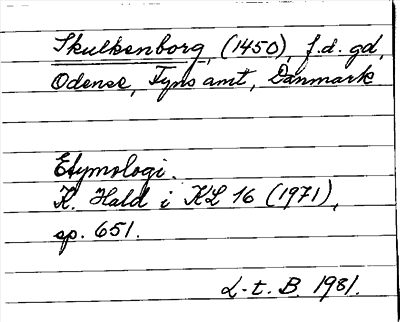 Skulkenborg, (1450), f.d. gd,
Odense, Fyns amt, Danmark
Etymologi.
K. Hald i KL 16 (1971),
sp. 651.
L-t. B. 1981.